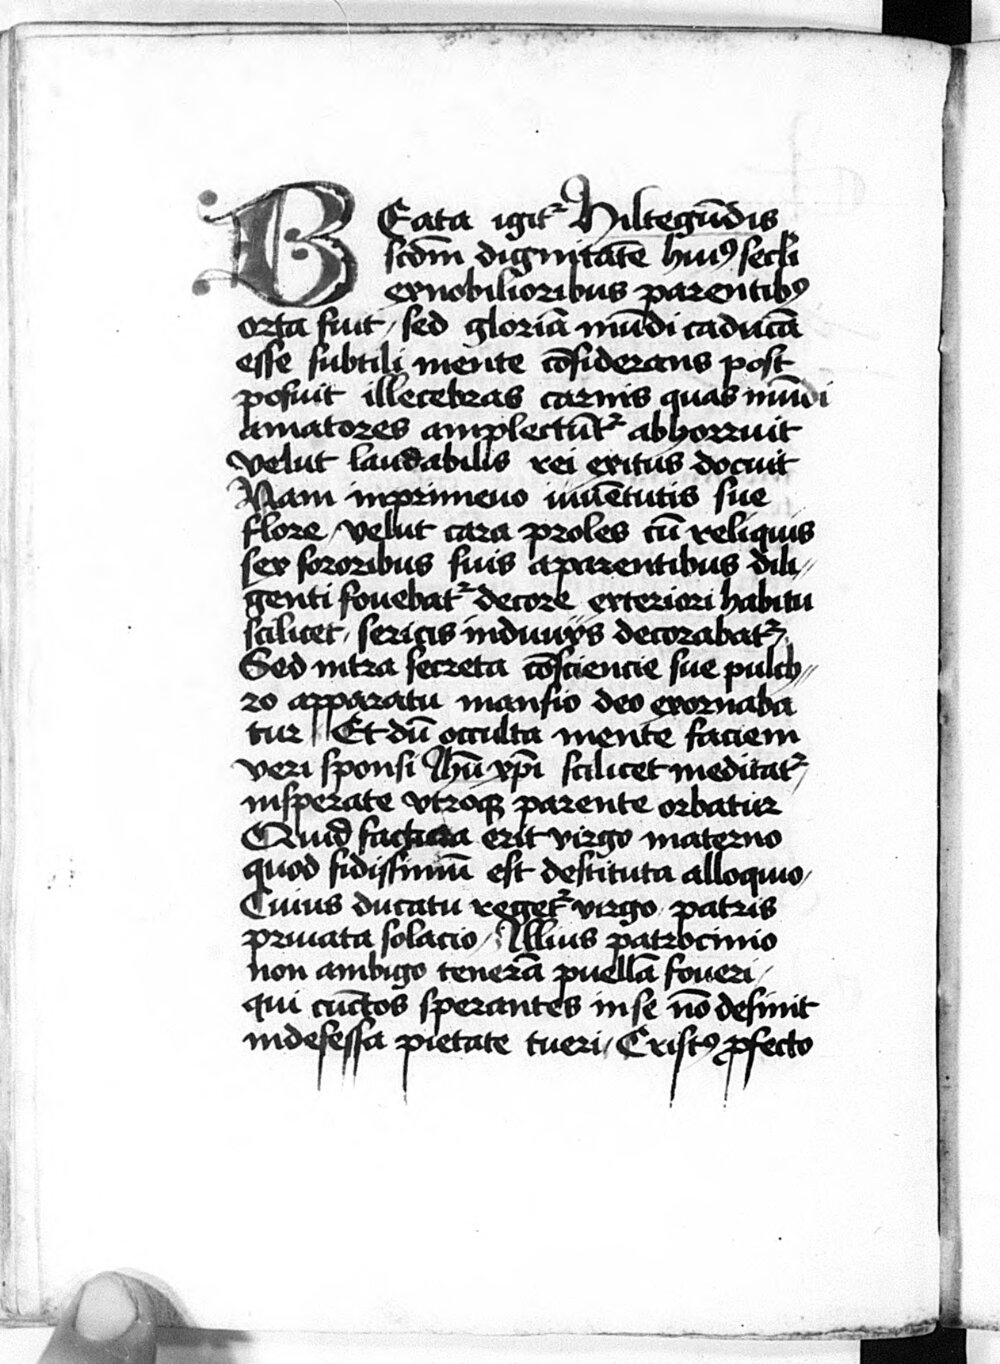 BEata igit᷑ Hiltegūdis
scd̄m dignitatē huiꝰ secli
exnobilioribus parentibꝰ
orta fuit / sed gloriā mūdi caducā
esse subtili mente cōsiderans post
posuit illecebras carnis quas mūdi
amatores amplectūt᷑ abhorruit
velut laudabilis rei exitus docuit
Nam inprimeuo iuuētutis sue
flore / velut cara proles cū reliquis
sex sororibus suis aparentibus dili//
genti fouebat᷑ decore exteriori habitu
scilicet / sericis induuijs decorabat᷑ /
Sed intra secreta cōsciencie sue pulch//
ro apparatu mansio deo exornaba
tur // Et dū occulta mente faciem
veri sponsi Ihū xp̄i scilicet meditat᷑ /
insperate vtroqꝫ parente orbatur
Quid factura erit virgo materno
quod fidissimū est destituta alloquio /
Cuius ducatu reget᷑ virgo patris
priuata solacio / Illius patrocinio
non ambigo tenerā puellā foueri /
qui cūctos sperantes inse nō desinit
indefessa pietate tueri / Cristꝰ ꝓfecto